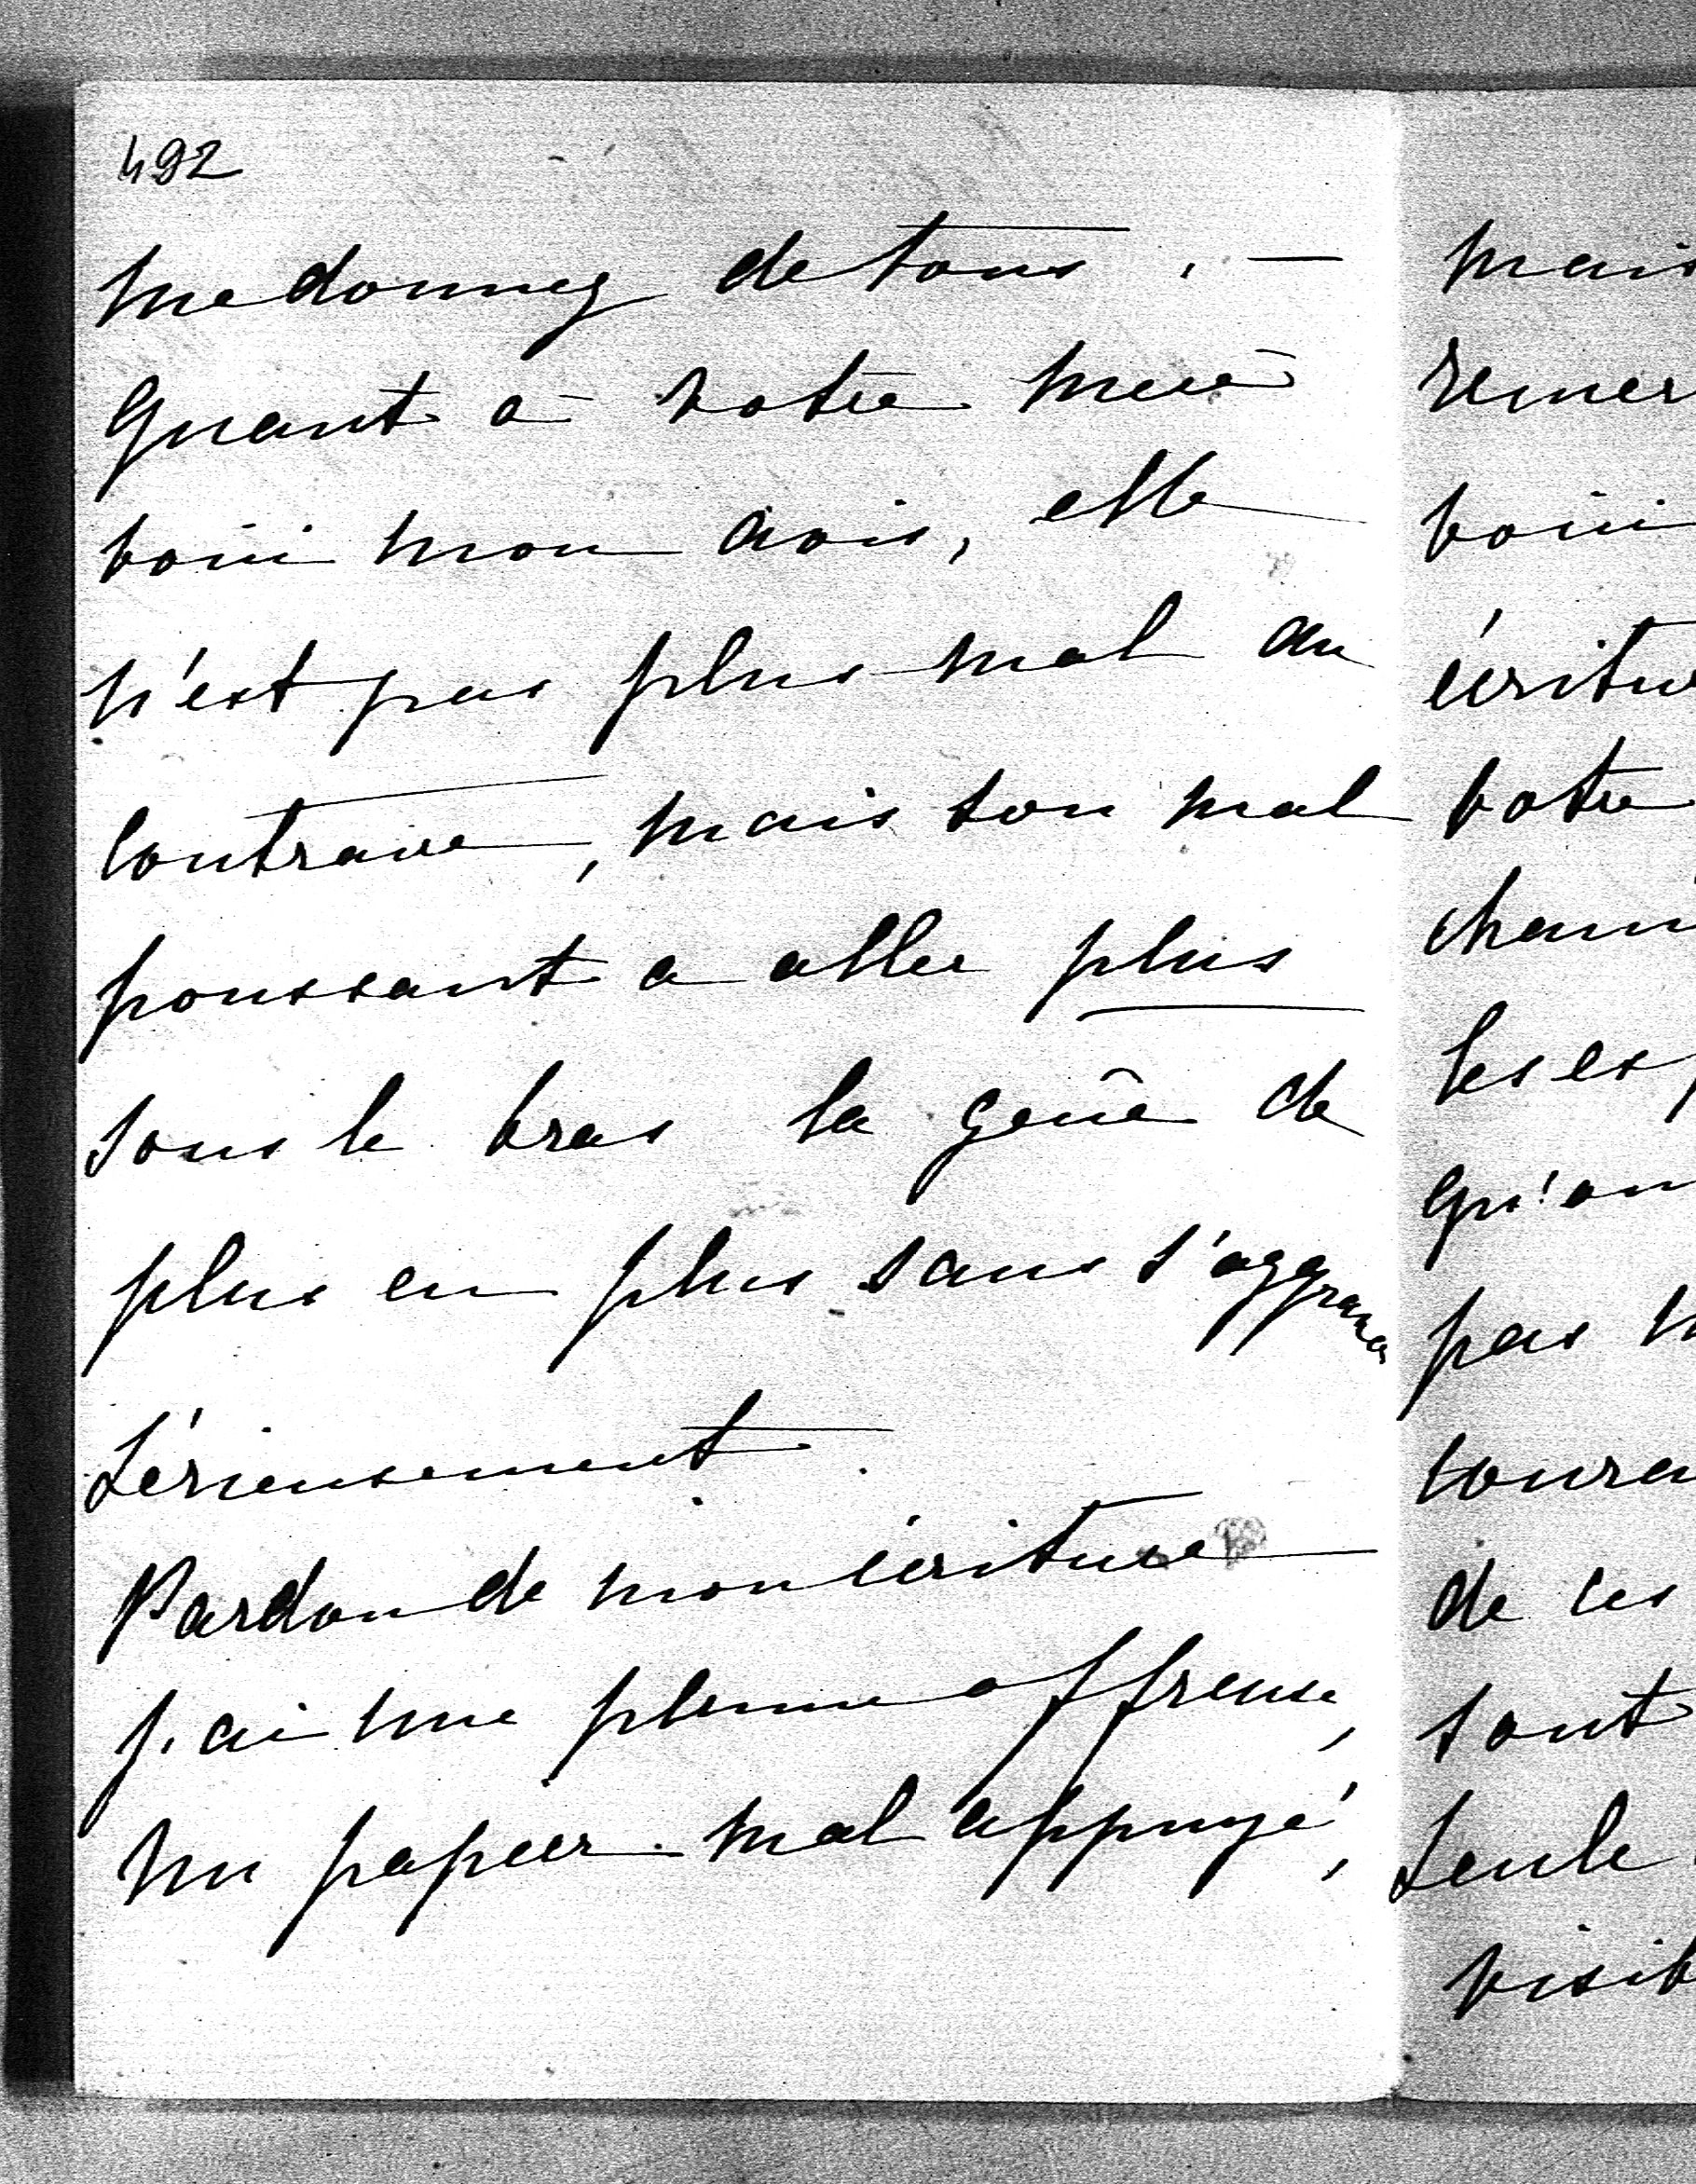 492
me donnez de tous . —
Quant à votre mère
voici mon avis, elle
n'est pas plus mal au
contraire, mais son mal
poussant a aller plus
sous le bras la gêne de
plus en plus sans s'aggraver
sérieusement.
Pardon de mon écriture
j'ai une plume affreuse,
un papier mal appuyé,
mais
remer
voici
écritu
votre
les es
qu'on
pas
de ces
sont
seule
visib